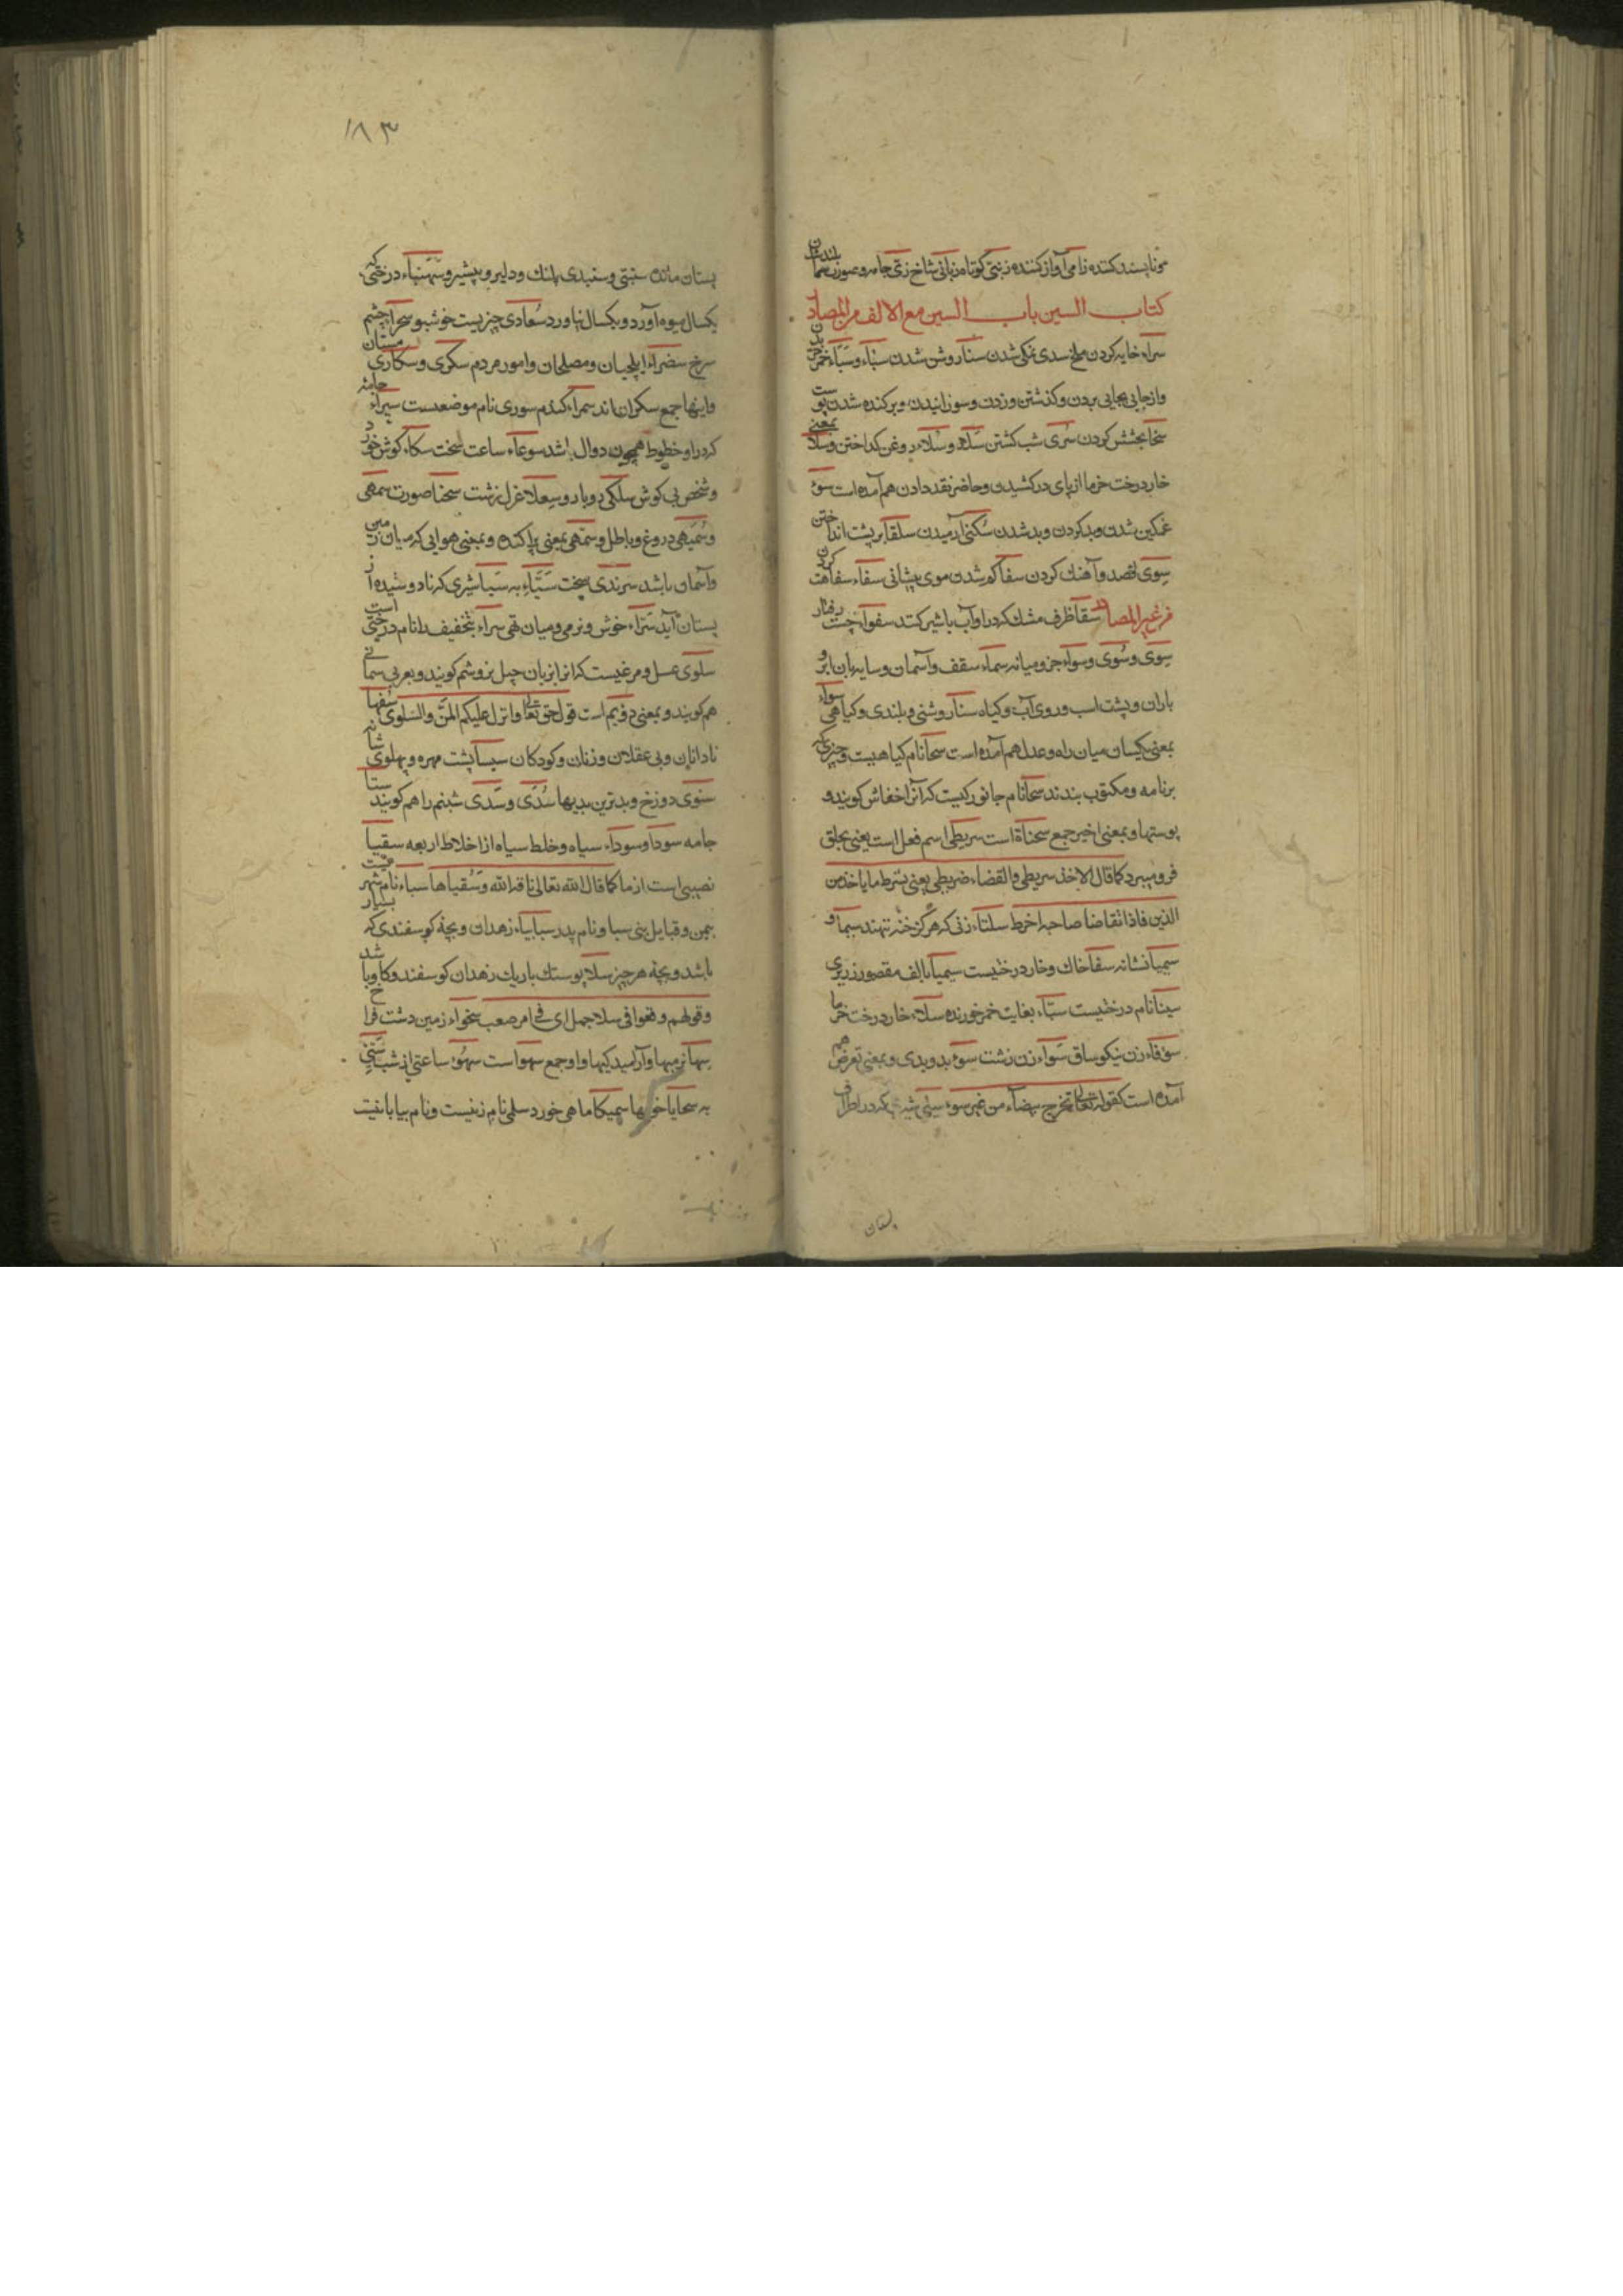 مو ناپسند کننده زامی آواز کننده زبنتی کوتاه زبانی شاخ زی جامه و صورت
کتاب السین باب السین مع الالف من المصادر
سراء خایه کردن ملخ سدی نمکی شدن سنا روشن شدن سباء و سباء خمر
و از جایی بجایی بردن و گذشتن و زدن و سوزانیدن و برکنده شدن پوست
سخا بخشش کردن سری شب گشتن سلاء و سلاء روغن گداختن و سلا بمعنی
خار درخت خرما از پای درکشیدن و حاضر نقد دادن هم آمده است سوء
غمگین شدن و بد کردن و بد شدن سکنی آرمیدن سلقا بر پشت انداختن
سوی قصد و آهنک کردن سفا کم شدن موی پیشانی سفاء سفاهت کردن
من غیر المصادر سقا ظرف مشک که در او آب یا شیر کنند سفوا خچست رفتار
سوی و سوی و سواء جز و میانه سماء سقف و آسمان و سایه بان ابر و
باران و پشت اسب و روی آب و کیاه سنا روشنی و بلندی و کیاهی سواء
بمعنی یکسان میان راه و عدل هم آمده است سحا نام کیاهیست و چیزی که
بر نامه و مکتوب بندند سحا نام جانورکیست که آنرا خفاش کویند و
پوستها و بمعنی اخیر جمع سحاة است سریطی اسم فعل است یعنی بحلق
فرو میبرد کما قال الاخذ سریطی و القضاء ضریطی یعنی یسرط ما یاخذ من
الدین فاذا تقاضا صاحبه اضرط سلتاء زنی که هرگز خضاب ننهد سیما و
سیمیا نشانه سفا خاک و خار درختیست سیمیا بالف مقصوره زیری
سینا نام درختیست سباء بغایت خمر خورنده سلاء خار درخت خرما
سوقاء زن نیکو ساق سواء زن زشت سوء بد و بدی و بمعنی تعرض هم
آمده است کقوله تعالی تخرج بیضاء من غیر سوء سیئی شیری که در اطراف
پستان
۱۸۳
پستان مانده سبنتی و سبندی پلنک و دلیر و پیشرو سنهاء درختی که
یکسال میوه آورد و یکسال نیاورد سعادی چیزیست خوشبو سجرا چشم
سرخ سفراء ایلچیان و مصلحان و امور مردم سکری و سکاری مستان
و اینها جمع سکران اند سمراء کندم سوری نام موضعست سیراء جامه
که در او خطوط همچون دوال باشد سوعاء ساعت سخت سکاء کوش خورد
و شخص بی کوش سلکی روبارو سعلا غول زشت سحنا صورت سمهی
و سمیهی دروغ و باطل و سمهی بمعنی پراکنده و بمعنی هوایی که میان زمین
و آسمان باشد سرندی سخت سباء به سبا شیری که نادوشیده از
پستان آید سراء خوش و نرمی و میان تهی سراء بتخفیف را نام درختی است
سلوی عسل و مرغیست که آنرا بزبان چپل بز و شم کویند و بعربی سمانی
هم کویند و بمعنی دویم است قول حق تعالی و انزل علیکم المن و السلوی سفها
نادانان و بی عقلان و زنان و کودکان سیسا پشت مهره و پهلوی شانه
سنوی دوزخ و بدترین بدیها سدی و سدی شبنم را هم کویند ستا
جامه سودا و سوداء سیاه و خلط سیاه از اخلاط اربعه سقیا
نصیبی است از ما کما قال الله تعالی ناقة الله و سقیاها سباء نام شهریست
بیمن و قبایل بنی سبا و نام پدر سبا سابیاء زهدان و بچهٔ کوسفندی که بسیار
باشد و بچهٔ هر چیز سلا پوستک باریک زهدان کوسفند و کاو باشد
و قولهم وقعوا فی سلا جمل ای فی امر صعب سخواء زمین دشت فراخ
سها نرمیها و آرامیدکیها و او جمع سهو است سهوء ساعتی از شب
به سجایا خویها سمیکا ماهی خورد سلمی نام زنیست و نام بیابانیست